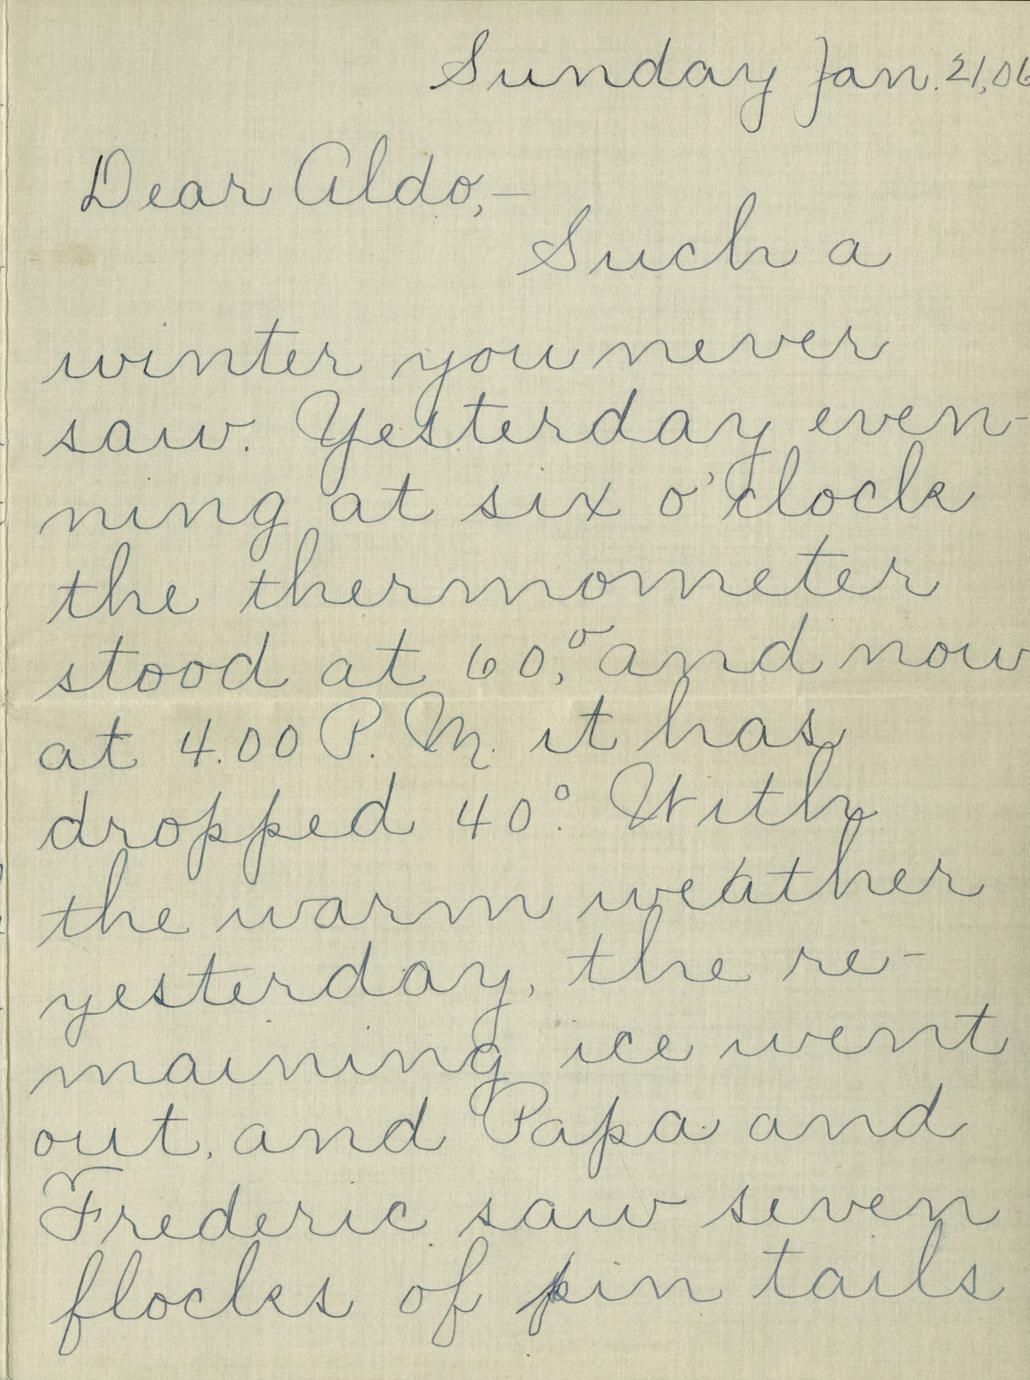 Sunday Jan. 21, 06
Dear Aldo,—
Such a
winter you never
saw. Yesterday even-
ning at six o'clock
the thermometer
stood at 60,° and now
at 4.00 P. M. it has
dropped 40°. With
the warm weather
yesterday, the re-
maining ice went
out, and Papa and
Frederic saw seven
flocks of pin tails